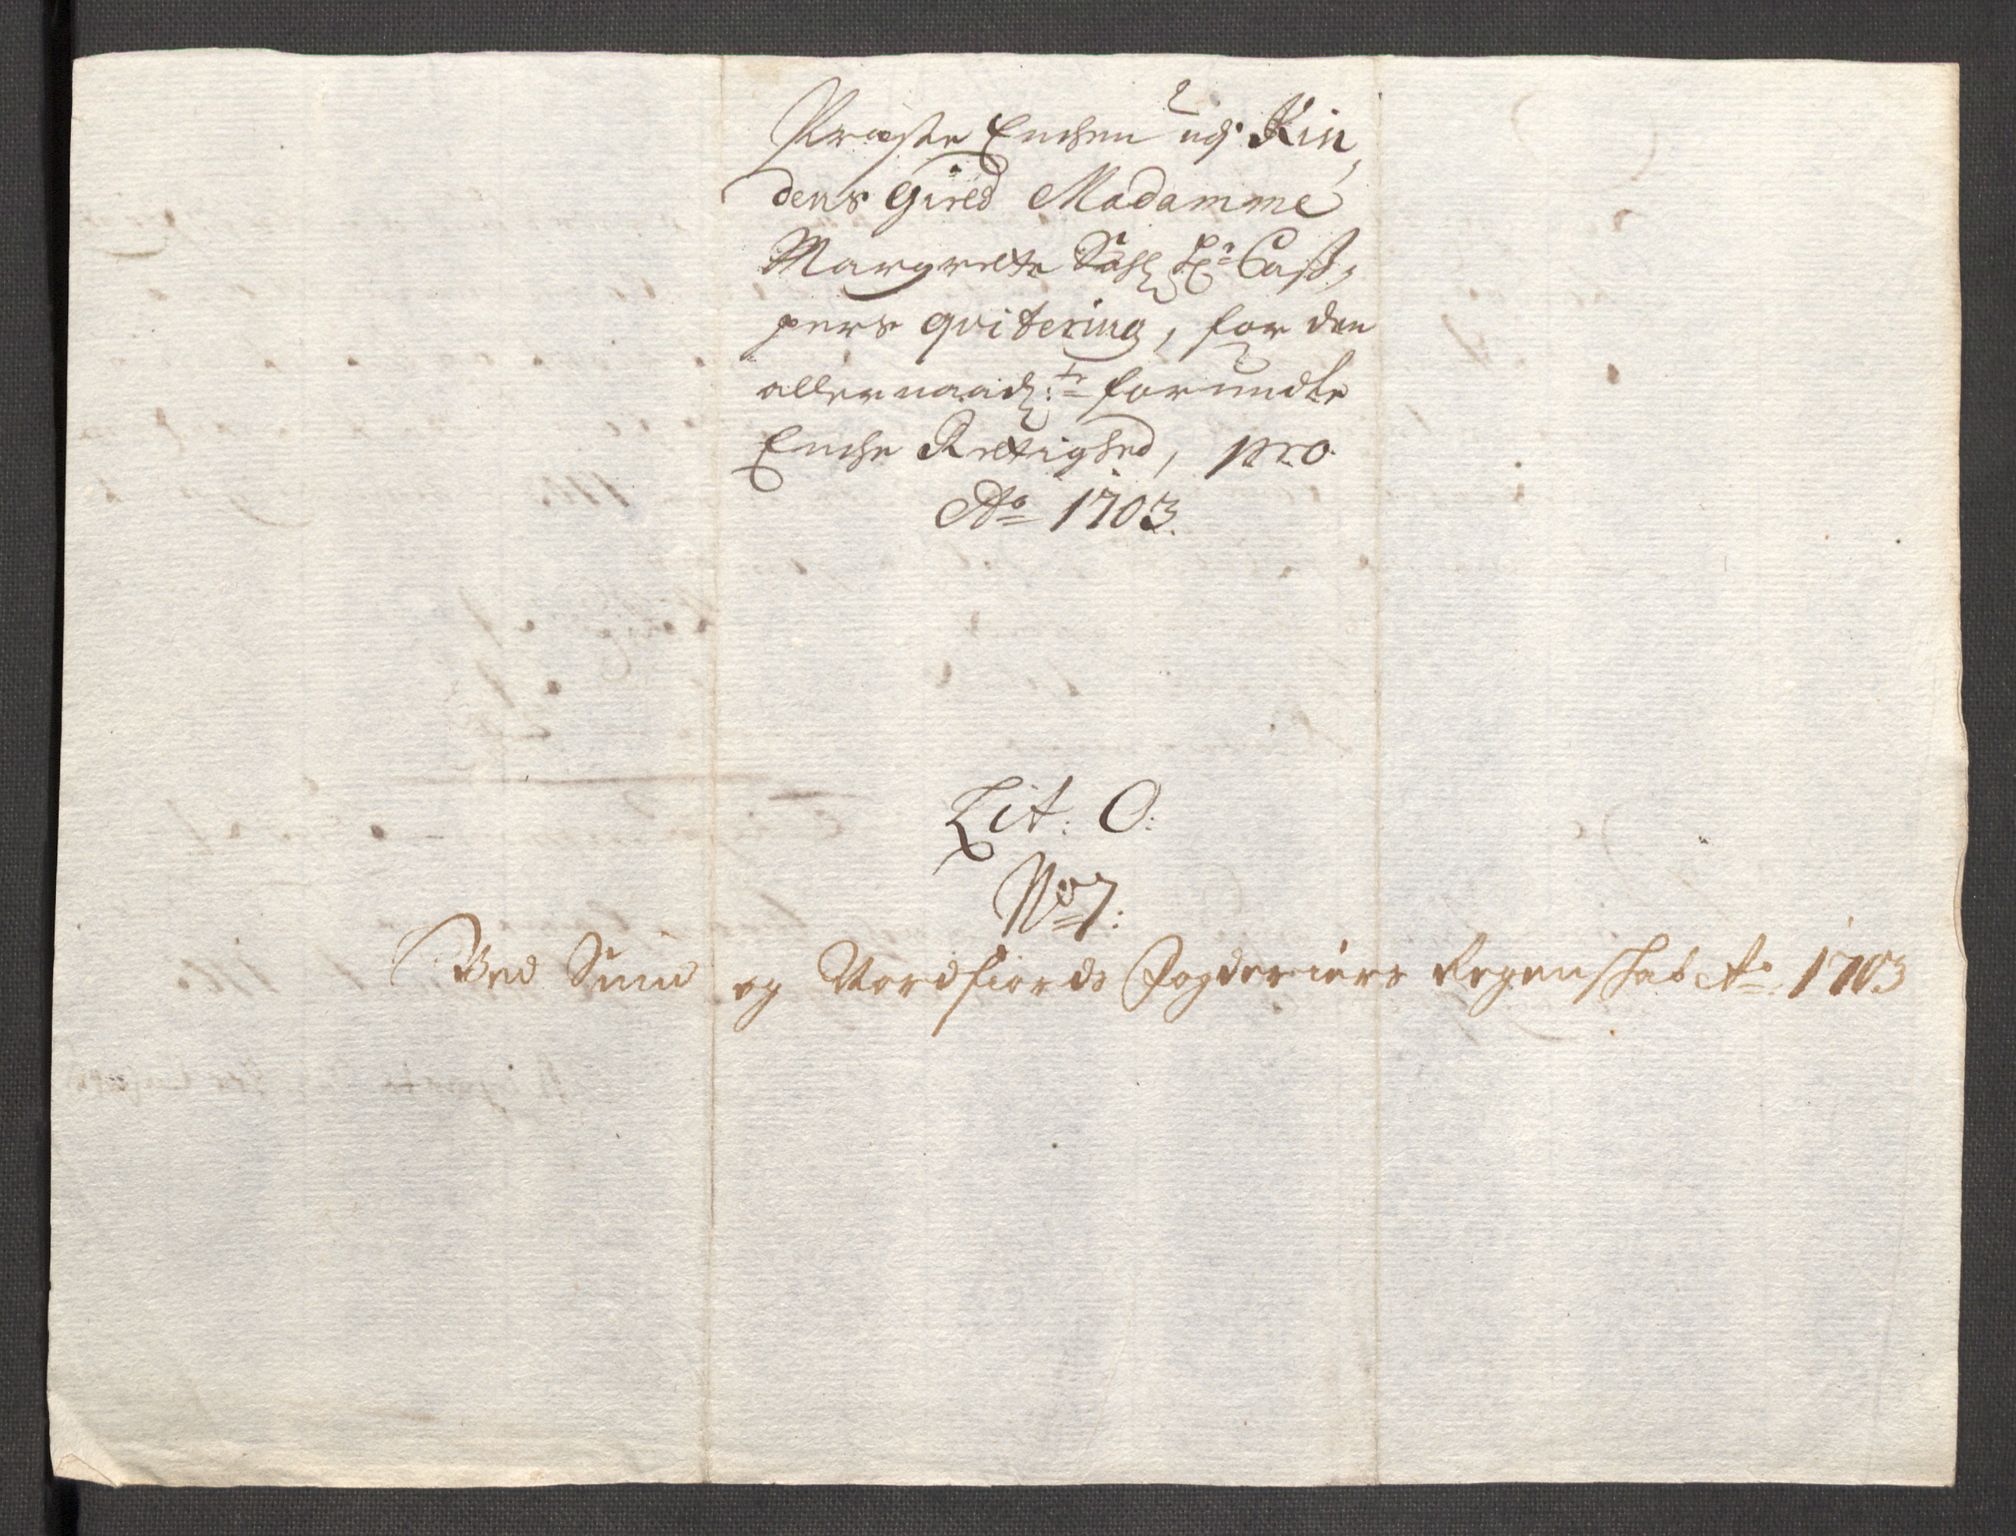 Præste Enchen udj Kin,
dens Gield Madamme
Margrete Sahl: Hr: Casp,
pers qvitering, for den
allernaad:te forundte
Enche Rettighed, pro
Ao 1703.
Lit: O:
No 7:
Ved Sund og Nordfiords Fogderiers Regenskab Ao 1703